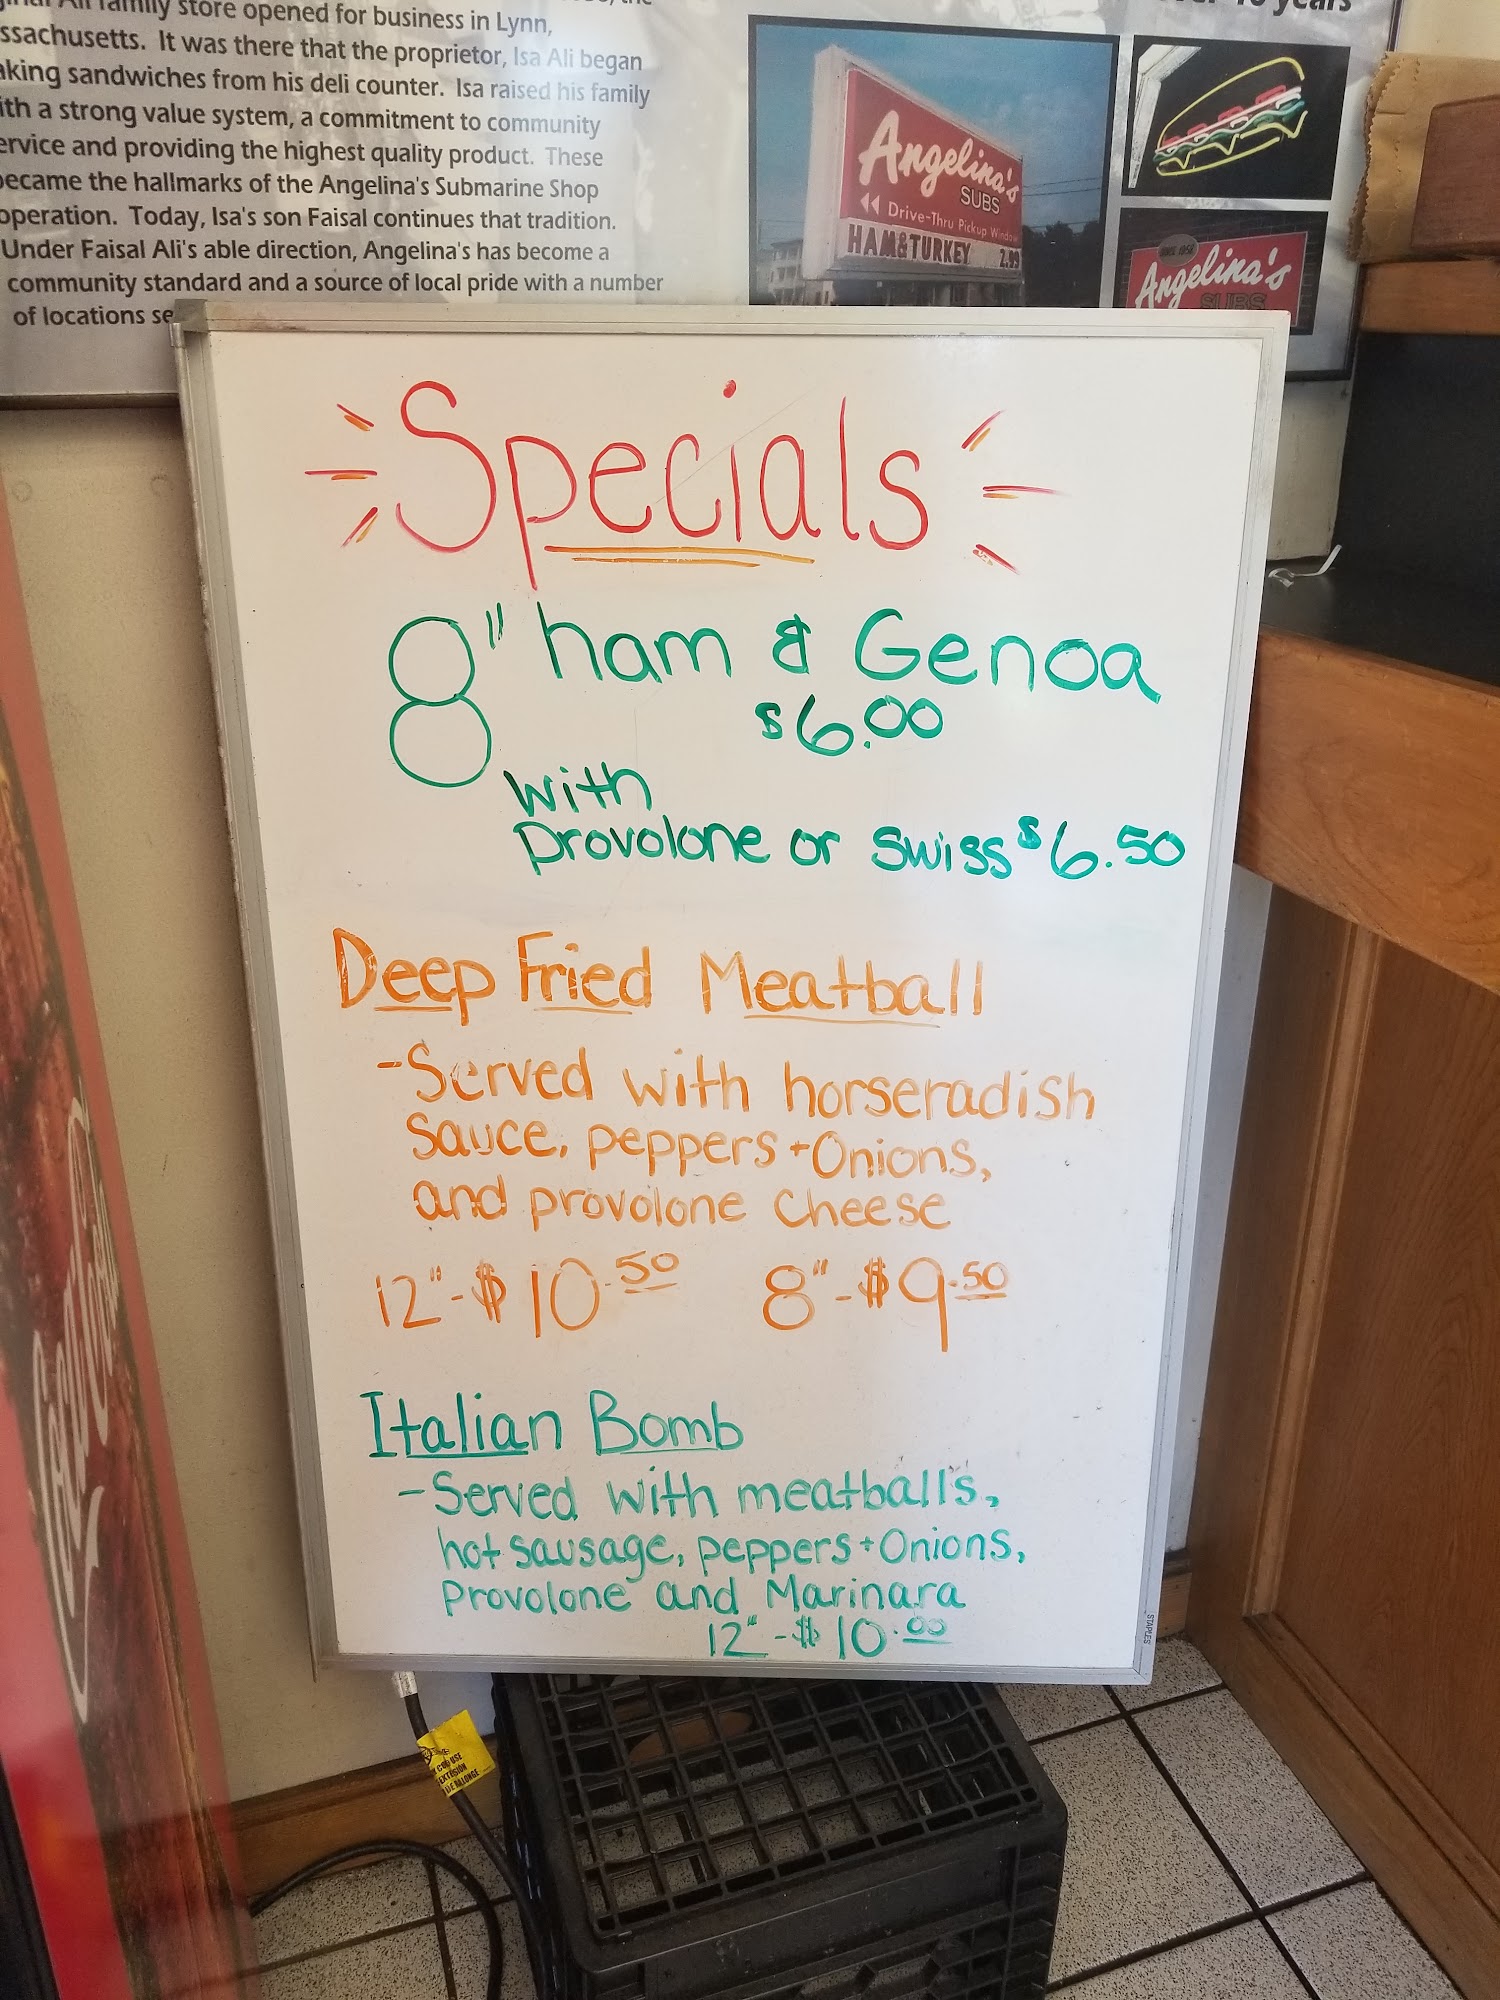 family store opened for business in Lynn,
ssachusetts. It was there that the proprietor, Isa Ali began
aking sandwiches from his deli counter. Isa raised his family
ith a strong value system, a commitment to community
ervice and providing the highest quality product. These
ecame the hallmarks of the Angelina's Submarine Shop
operation. Today, Isa's son Faisal continues that tradition.
Under Faisal Ali's able direction, Angelina's has become a
community standard and a source of local pride with a number
of locations se
years
Angelina's
SUBS
Drive-Thru Pickup Window
HAM&TURKEY 2.99
Angelina's
SUBS
Specials
8" ham & Genoa
$6.00
with
Provolone or Swiss $6.50
Deep Fried Meatball
-Served with horseradish
sauce, peppers + Onions,
and provolone cheese
12" - $10.50 8" - $9.50
Italian Bomb
- Served with meatballs,
hot sausage, peppers + Onions,
Provolone and Marinara
12" - $10.00
STAPLES